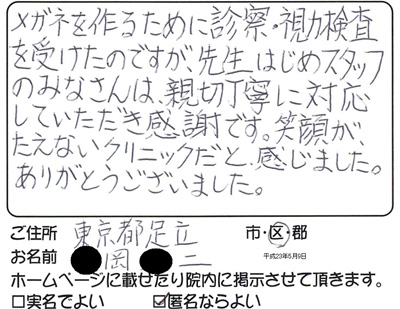 メガネを作るために診察・視力検査
を受けたのですが、先生はじめスタッフ
のみなさんは、親切丁寧に対応
していただき感謝です。笑顔が、
たえないクリニックだと、感じました。
ありがとうございました。
ご住所 東京都足立 市・区・郡
平成23年5月9日
お名前 岡 二
ホームページに載せたり院内に掲示させて頂きます。
□実名でよい ☑匿名ならよい